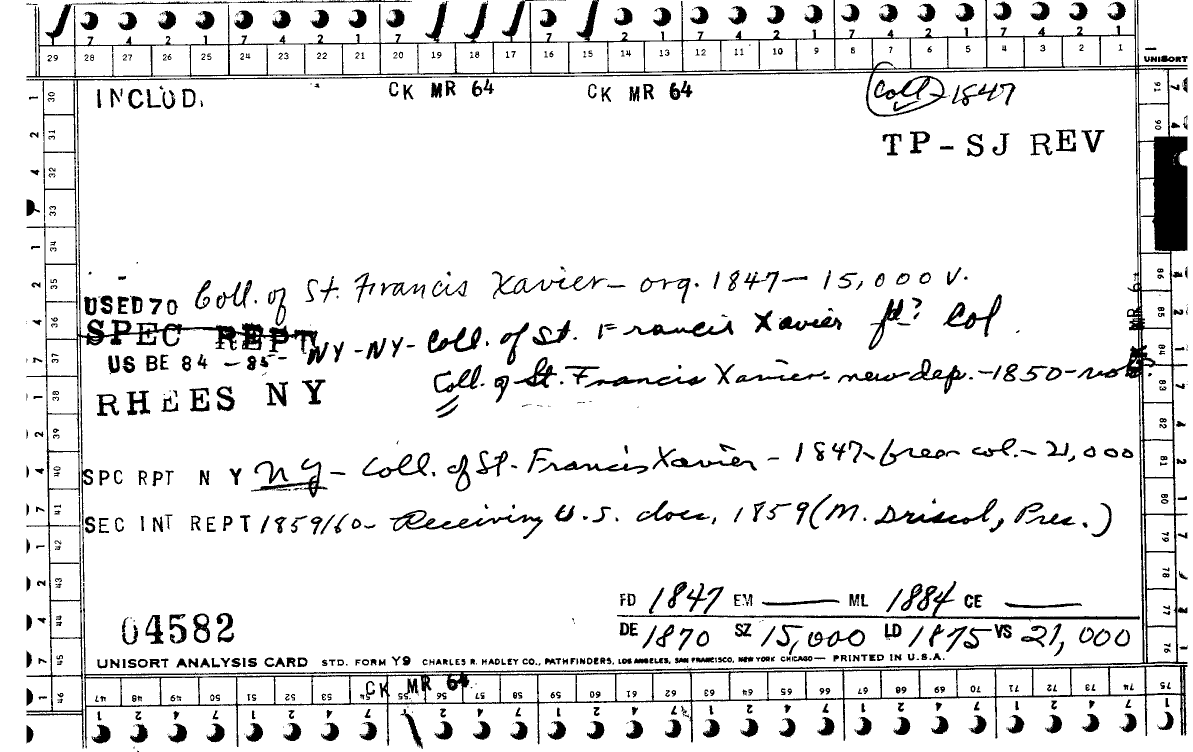 7 4 2 1 7 4 2 1 7 7 2 1 7 4 2 1 7 4 2 1 7 4 2 1
29 28 27 26 25 24 23 22 21 20 19 18 17 16 15 14 13 12 11 10 9 8 7 6 5 4 3 2 1
UNISORT
INCLUD. CK MR 64 CK MR 64 Coll - 1847
TP-SJ REV
USED 70 Coll. of St. Francis Xavier - org. 1847 - 15,000 v.
SPEC REPT NY-NY- Coll. of St. Francis Xavier fd? Col.
US BE 84-85-
Coll. of St. Francis Xavier - new dep. - 1850 -
RHEES NY
SPC RPT N Y NY - Coll. of St. Francis Xavier - 1847 - col. - 21,000
SEC INT REPT 1859/60 - Receiving U.S. docs, 1859 (M. Driscol, Pres.)
FD 1847 EM ML 1884 CE
04582 DE 1870 SZ 15,000 LD 1875 VS 21,000
UNISORT ANALYSIS CARD STD. FORM Y9 CHARLES R. HADLEY CO., PATHFINDERS, LOS ANGELES, SAN FRANCISCO, NEW YORK CHICAGO — PRINTED IN U.S.A.
CK MR 64
47 48 49 50 51 52 53 54 55 56 57 58 59 60 61 62 63 64 65 66 67 68 69 70 71 72 73 74 75